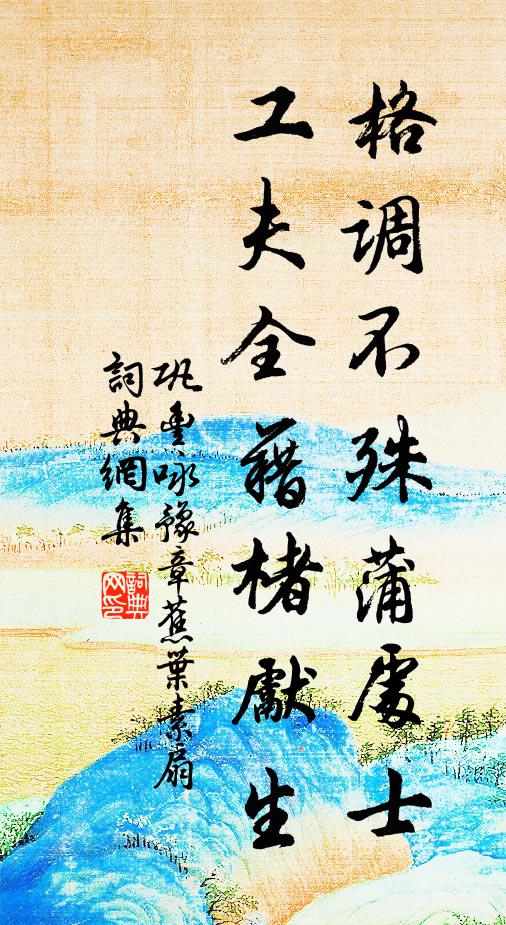 格调不殊蒲處士
工夫全藉楮獻生
巩豊咏豫章蕉葉素扇
詞典網集
詞典网印